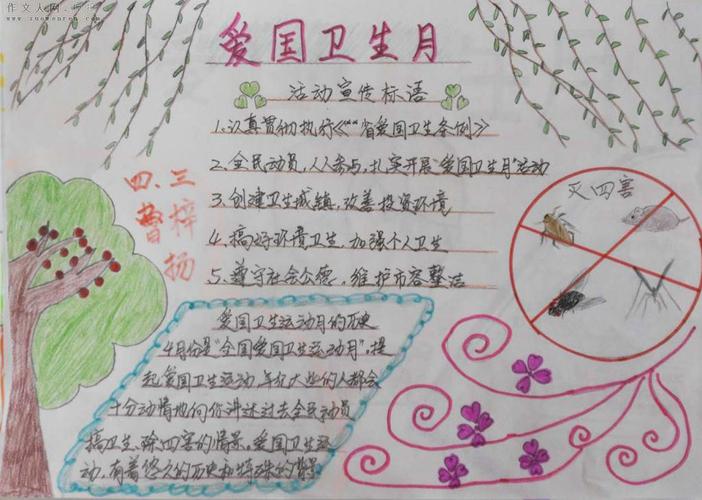 作文人网
爱国卫生月
活动宣传标语
1.认真贯彻执行《**省爱国卫生条例》
2.全民动员,人人参与,扎实开展"爱国卫生月"活动
3.创建卫生城镇,改善投资环境
4.搞好环境卫生,加强个人卫生
5.遵守社会公德,维护市容整洁
四、三
曹梓扬
灭四害
爱国卫生运动月的历史
4月份是"全国爱国卫生运动月",提
起爱国卫生运动,年纪大些的人都会
十分动情地向你讲述过去全民动员
搞卫生、除四害的情景。爱国卫生运
动,有着悠久的历史和特殊的背景